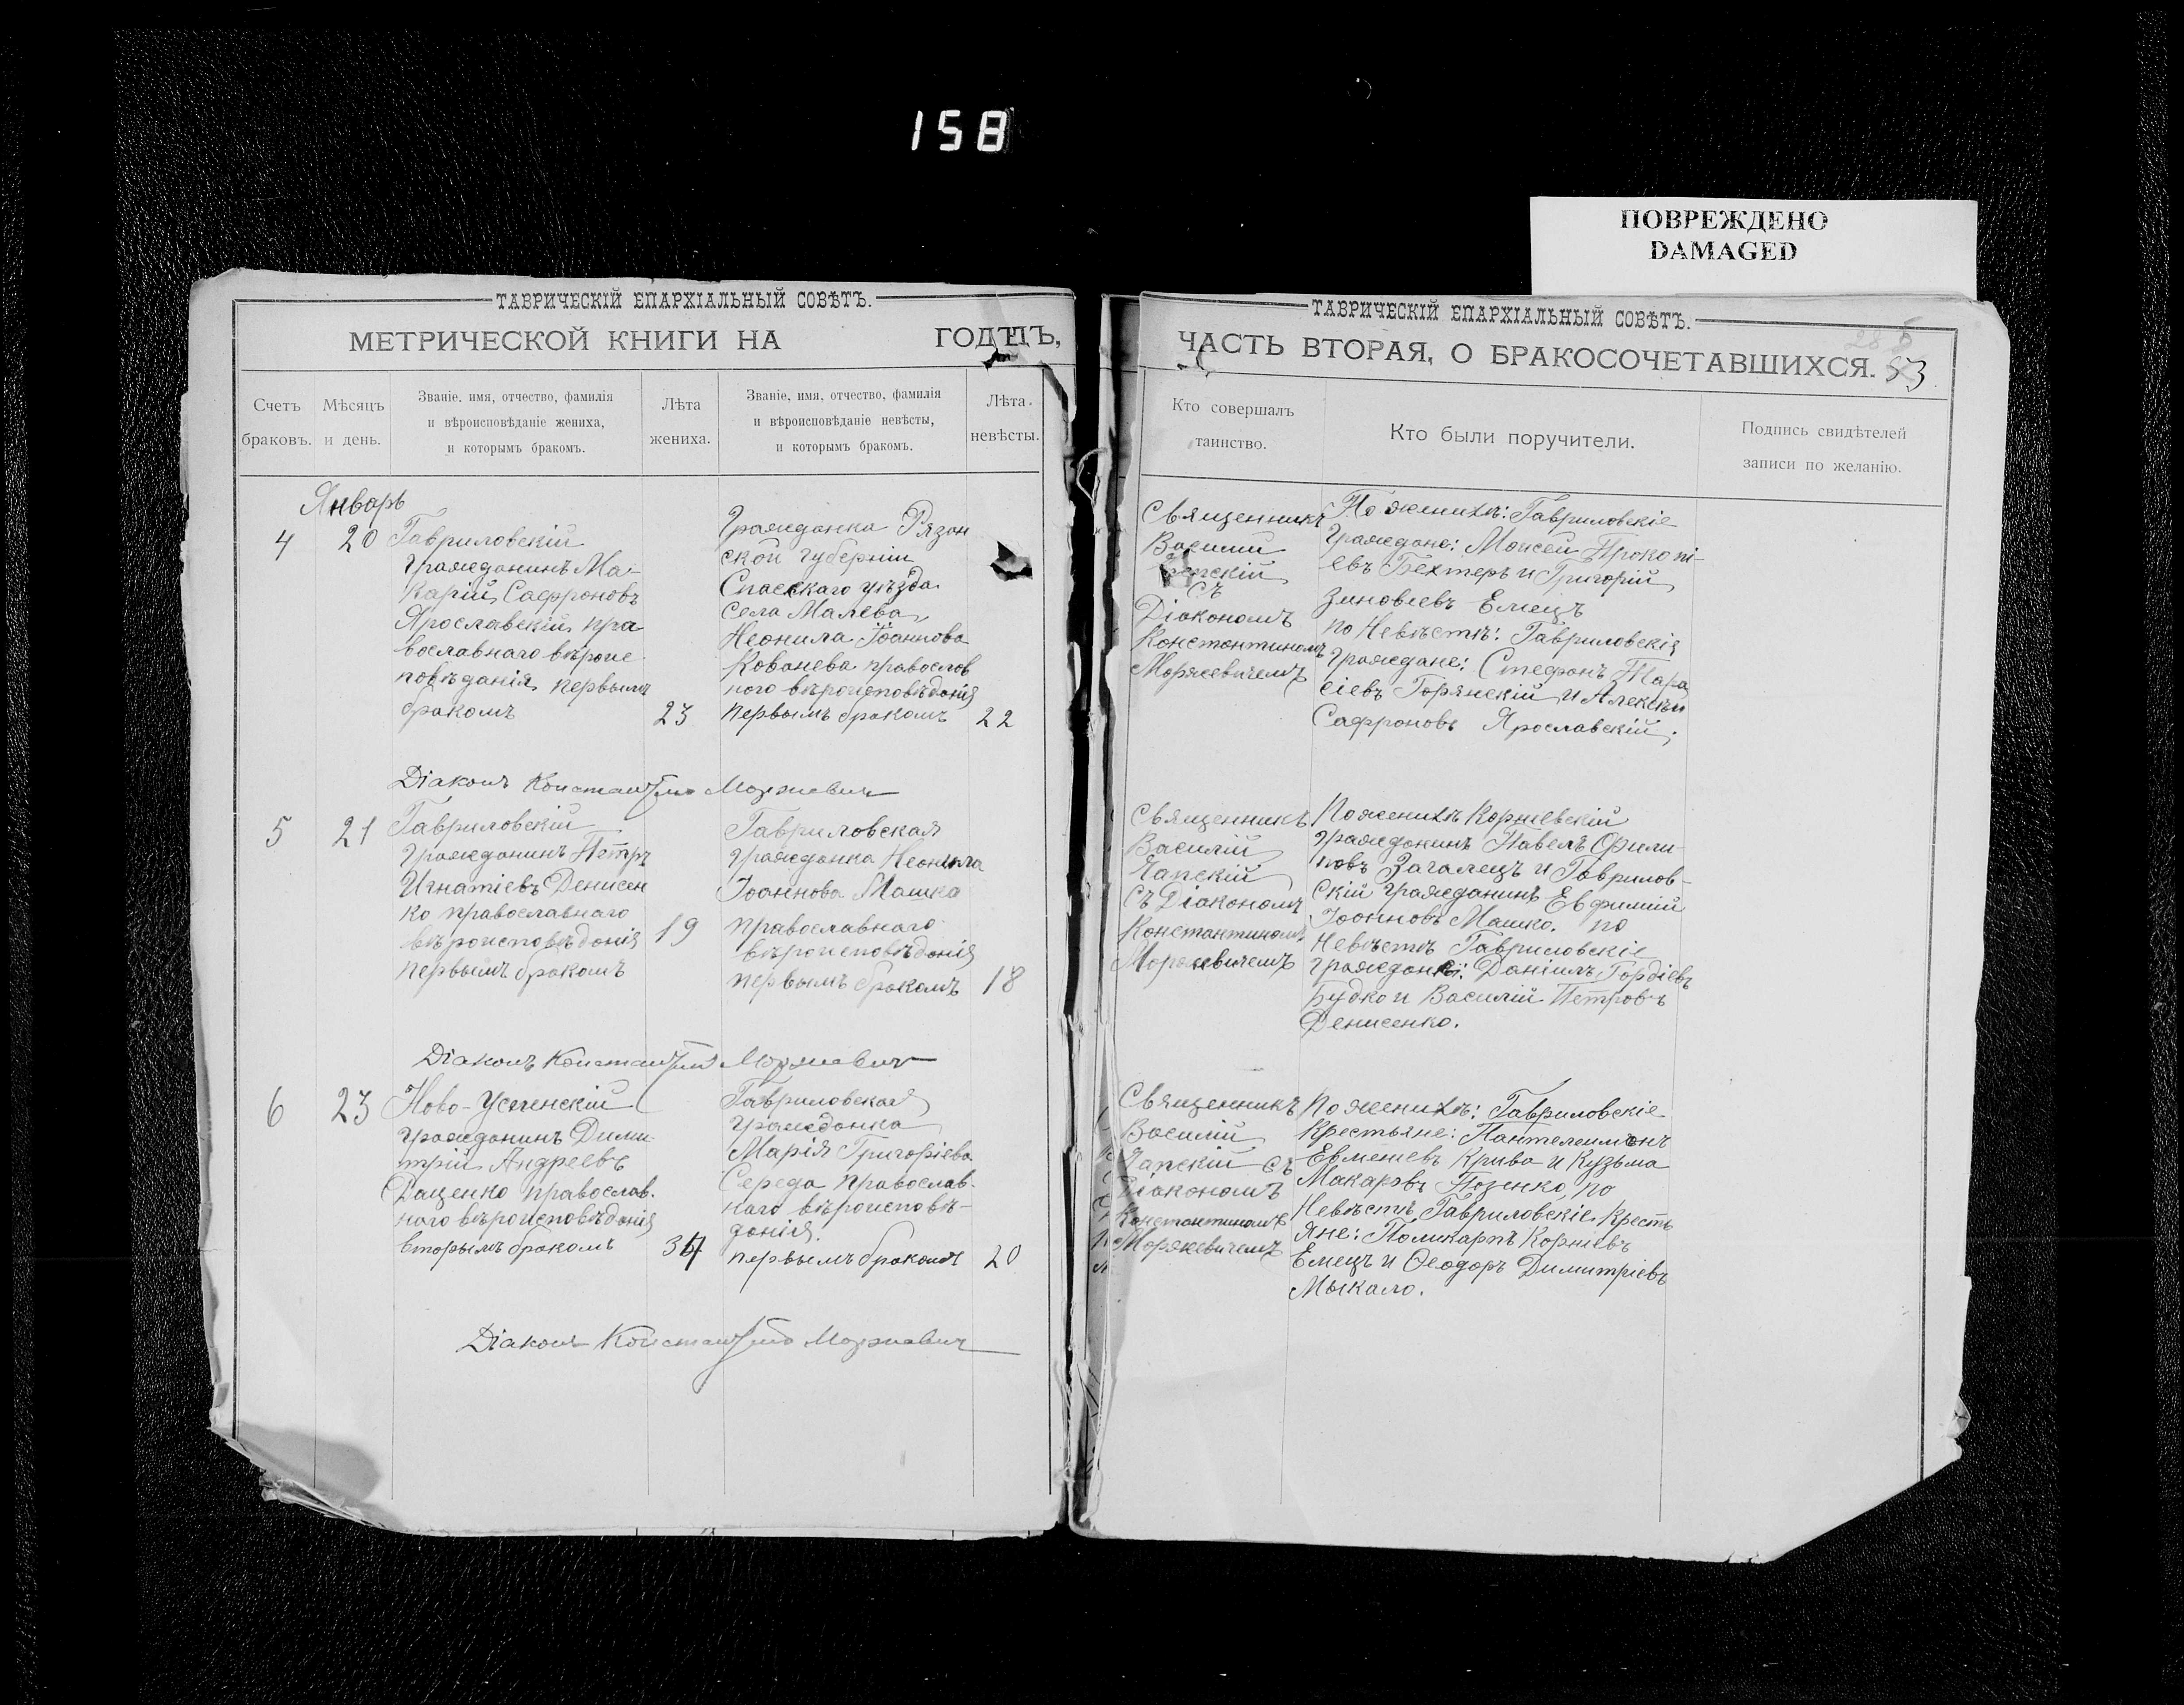 158
ПОВРЕЖДЕНО
DAMAGED
ТАВРИЧЕСКІЙ ЕПАРХІАЛЬНЫЙ СОВѢТЪ.
МЕТРИЧЕСКОЙ КНИГИ НА ГОДЪ,
Счетъ браковъ.
Мѣсяцъ и день.
Званіе, имя, отчество, фамилія
и вѣроисповѣданіе жениха,
и которымъ бракомъ.
Лѣта жениха.
Званіе, имя, отчество, фамилія
и вѣроисповѣданіе невѣсты,
и которымъ бракомъ.
Лѣта невѣсты.
Январь
4
20
Гавриловскій
гражданинъ Ма-
карій Сафроновъ
Ярославскій пра
вославнаго вѣроис
повѣданія первымъ
бракомъ
23
Гражданка Рязан
ской губерніи
Спасскаго уѣзда
села Малева
Неонила Іоаннова
Кованева православ
наго вѣроисповѣданія
первымъ бракомъ
22
Діаконъ Константинъ Моржевич
5
21
Гавриловскій
гражданинъ Петръ
Игнатіевъ Денисен
ко православнаго
вѣроисповѣданія
первымъ бракомъ
19
Гавриловская
гражданка Неонила
Іоаннова Машка
православнаго
вѣроисповѣданія
первымъ бракомъ
18
Діаконъ Константинъ Моржевич
6
23
Ново-Успенскій
гражданинъ Дими
трій Андреевъ
Даценко православ.
наго вѣроисповѣданія
вторымъ бракомъ
Гавриловская
гражданка
Марія Григоріева
Середа православ-
наго вѣроисповѣ-
данія.
первымъ бракомъ
20
Діаконъ Константинъ Моржевич
ТАВРИЧЕСКІЙ ЕПАРХІАЛЬНЫЙ СОВѢТЪ.
ЧАСТЬ ВТОРАЯ, О БРАКОСОЧЕТАВШИХСЯ.
53
Кто совершалъ
таинство.
Кто были поручители.
Подпись свидѣтелей
записи по желанію.
Священникъ
Василій
съ
Діакономъ
Константиномъ
Моржевичемъ
По женихѣ: Гавриловскіе
граждане: Моисей Прокопі-
евъ Бехтеръ и Григорій
Зиновіевъ Емецъ
по Невѣстѣ: Гавриловскія
граждане: Стефанъ Тара
сіевъ Горянскій и Алексѣй
Сафроновъ Ярославскій.
Священникъ
Василій
Чапскій
съ Діакономъ
Константиномъ
Моржевичемъ
По женихѣ Корніевскій
гражданинъ Павелъ Фили-
повъ Загалецъ и Гаврилов-
скій гражданинъ Евфимій
Іоанновъ Машко. по
Невѣстѣ Гавриловскіе
граждане: Даніилъ Гордіевъ
Будко и Василій Петровъ
Денисенко.
Священникъ
Василій
Чапскій съ
Діакономъ
Константиномъ
Моржевичемъ
По женихѣ: Гавриловскіе
крестьяне: Пантелеимонъ
Евменіевъ Крива и Кузьма
Макаровъ Позенко, по
Невѣстѣ Гавриловскіе кресть
яне: Поликарпъ Корніевъ
Емецъ и Ѳеодоръ Димитріевъ
Мыкало.